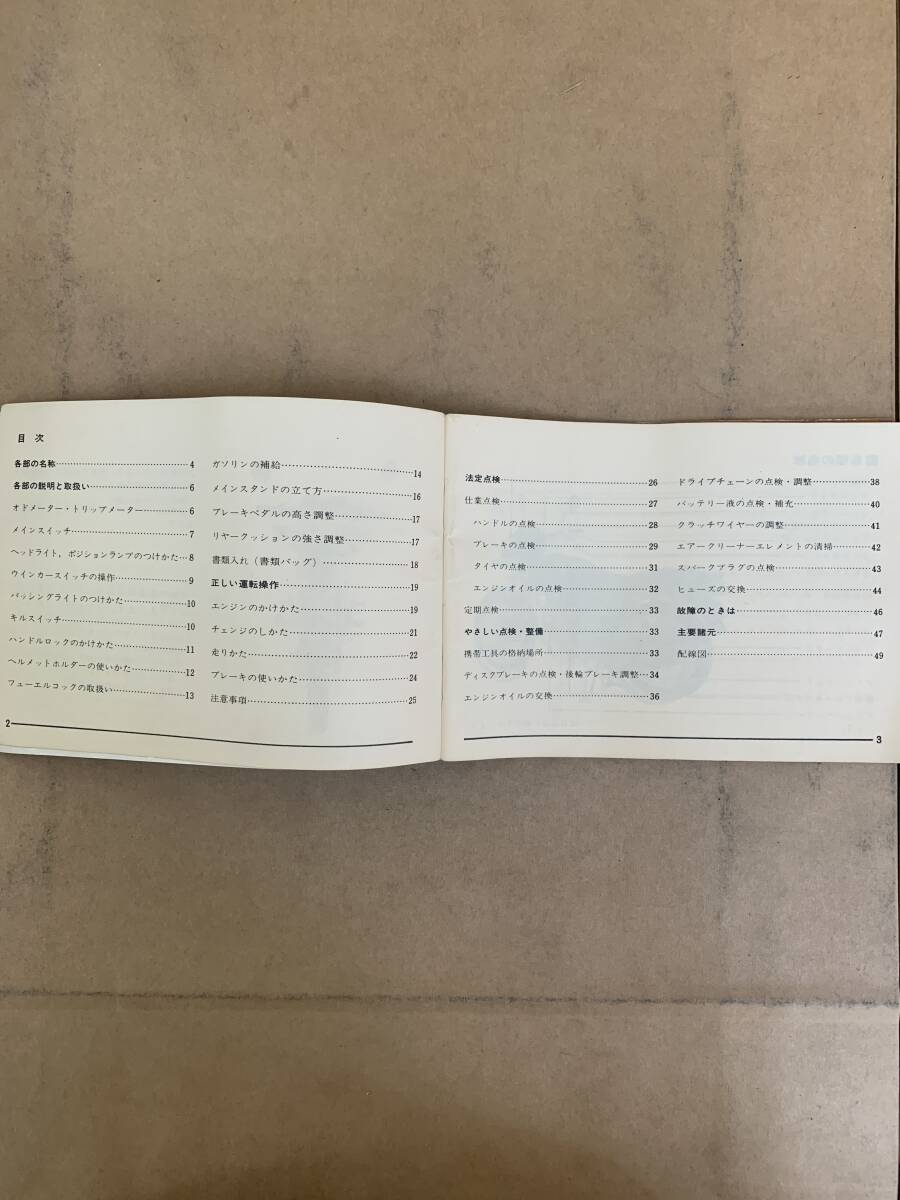 目次
各部の名称……4
各部の説明と取扱い……6
オドメーター・トリップメーター……6
メインスイッチ……7
ヘッドライト，ポジションランプのつけかた…8
ウインカースイッチの操作……9
パッシングライトのつけかた……10
キルスイッチ……10
ハンドルロックのかけかた……11
ヘルメットホルダーの使いかた……12
フューエルコックの取扱い……13
ガソリンの補給……14
メインスタンドの立て方……16
ブレーキペダルの高さ調整……17
リヤークッションの強さ調整……17
書類入れ（書類バッグ）……18
正しい運転操作……19
エンジンのかけかた……19
チェンジのしかた……21
走りかた……22
ブレーキの使いかた……24
注意事項……25
2
法定点検……26
仕業点検……27
ハンドルの点検……28
ブレーキの点検……29
タイヤの点検……31
エンジンオイルの点検……32
定期点検……33
やさしい点検・整備……33
携帯工具の格納場所……33
ディスクブレーキの点検・後輪ブレーキ調整…34
エンジンオイルの交換……36
ドライブチェーンの点検・調整……38
バッテリー液の点検・補充……40
クラッチワイヤーの調整……41
エアークリーナーエレメントの清掃……42
スパークプラグの点検……43
ヒューズの交換……44
故障のときは……46
主要諸元……47
配線図……49
3